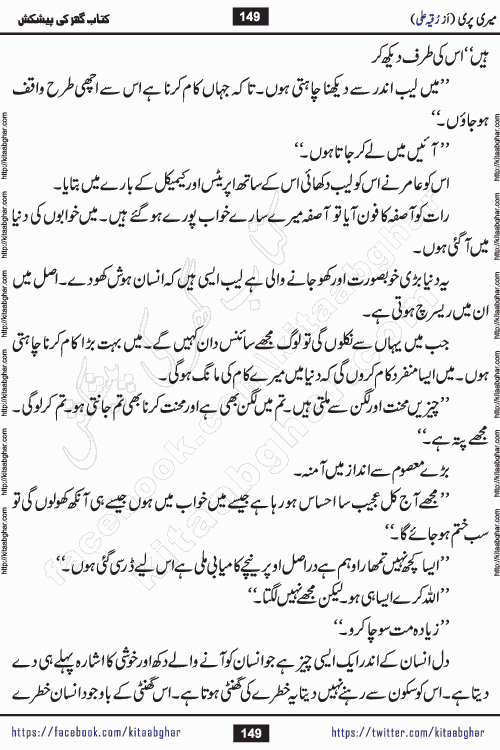 میری پری (از رُقیہ علی) 149 کتاب گھر کی پیشکش
ہیں‘‘ اس کی طرف دیکھ کر
’’میں لیب اندر سے دیکھنا چاہتی ہوں۔ تا کہ جہاں کام کرنا ہے اس سے اچھی طرح واقف
ہوجاؤں۔‘‘
’’آئیں میں لے کر جاتا ہوں۔‘‘
اس کو عامر نے اس کو لیب دکھائی اس کے ساتھ اپریٹس اور کیمیکل کے بارے میں بتایا۔
رات کو آصفہ کا فون آیا تو آصفہ میرے سارے خواب پورے ہوگئے ہیں۔ میں خوابوں کی دنیا
میں آگئی ہوں۔
یہ دنیا بڑی خوبصورت اور کھو جانے والی ہے لیب ایسی ہیں کہ انسان ہوش کھو دے۔ اصل میں
ان میں ریسرچ ہوتی ہے۔
جب میں یہاں سے نکلوں گی تو لوگ مجھے سائنس دان کہیں گے۔ میں بہت بڑا کام کرنا چاہتی
ہوں۔ میں ایسا منفرد کام کروں گی کہ دنیا میں میرے کام کی مانگ ہوگی۔
’’چیزیں محنت اور لگن سے ملتی ہیں۔ تم میں لگن بھی ہے اور محنت کرنا بھی تم جانتی ہو۔ تم کرلوگی۔
مجھے پتہ ہے۔‘‘
بڑے معصوم سے انداز میں آمنہ۔
’’مجھے آج کل عجیب سا احساس ہورہا ہے جیسے میں خواب میں ہوں جیسے ہی آنکھ کھولوں گی تو
سب ختم ہوجائے گا۔‘‘
’’ایسا کچھ نہیں تمھارا وہم ہے دراصل اوپر نیچے کامیابی ملی ہے اس لیے ڈر سی گئی ہوں۔‘‘
’’اللہ کرے ایسا ہی ہو۔ لیکن مجھے نہیں لگتا۔‘‘
’’زیادہ مت سوچا کرو۔‘‘
دل انسان کے اندر ایک ایسی چیز ہے جو انسان کو آنے والے دکھ اور خوشی کا اشارہ پہلے ہی دے
دیتا ہے۔ اس کو سکون سے رہنے نہیں دیتا یہ خطرے کی گھنٹی ہوتا ہے۔ اس گھنٹی کے باوجود انسان خطرے
https://facebook.com/kitaabghar 149 https://twitter.com/kitaabghar
http://kitaabghar.com http://kitaabghar.com http://kitaabghar.com http://kitaabghar.com http://kitaabghar.com http://kitaabghar.com
http://kitaabghar.com http://kitaabghar.com http://kitaabghar.com http://kitaabghar.com http://kitaabghar.com http://kitaabghar.com
کتاب گھر کی پیشکش
kitaabghar.com
facebook.com/kitaabghar